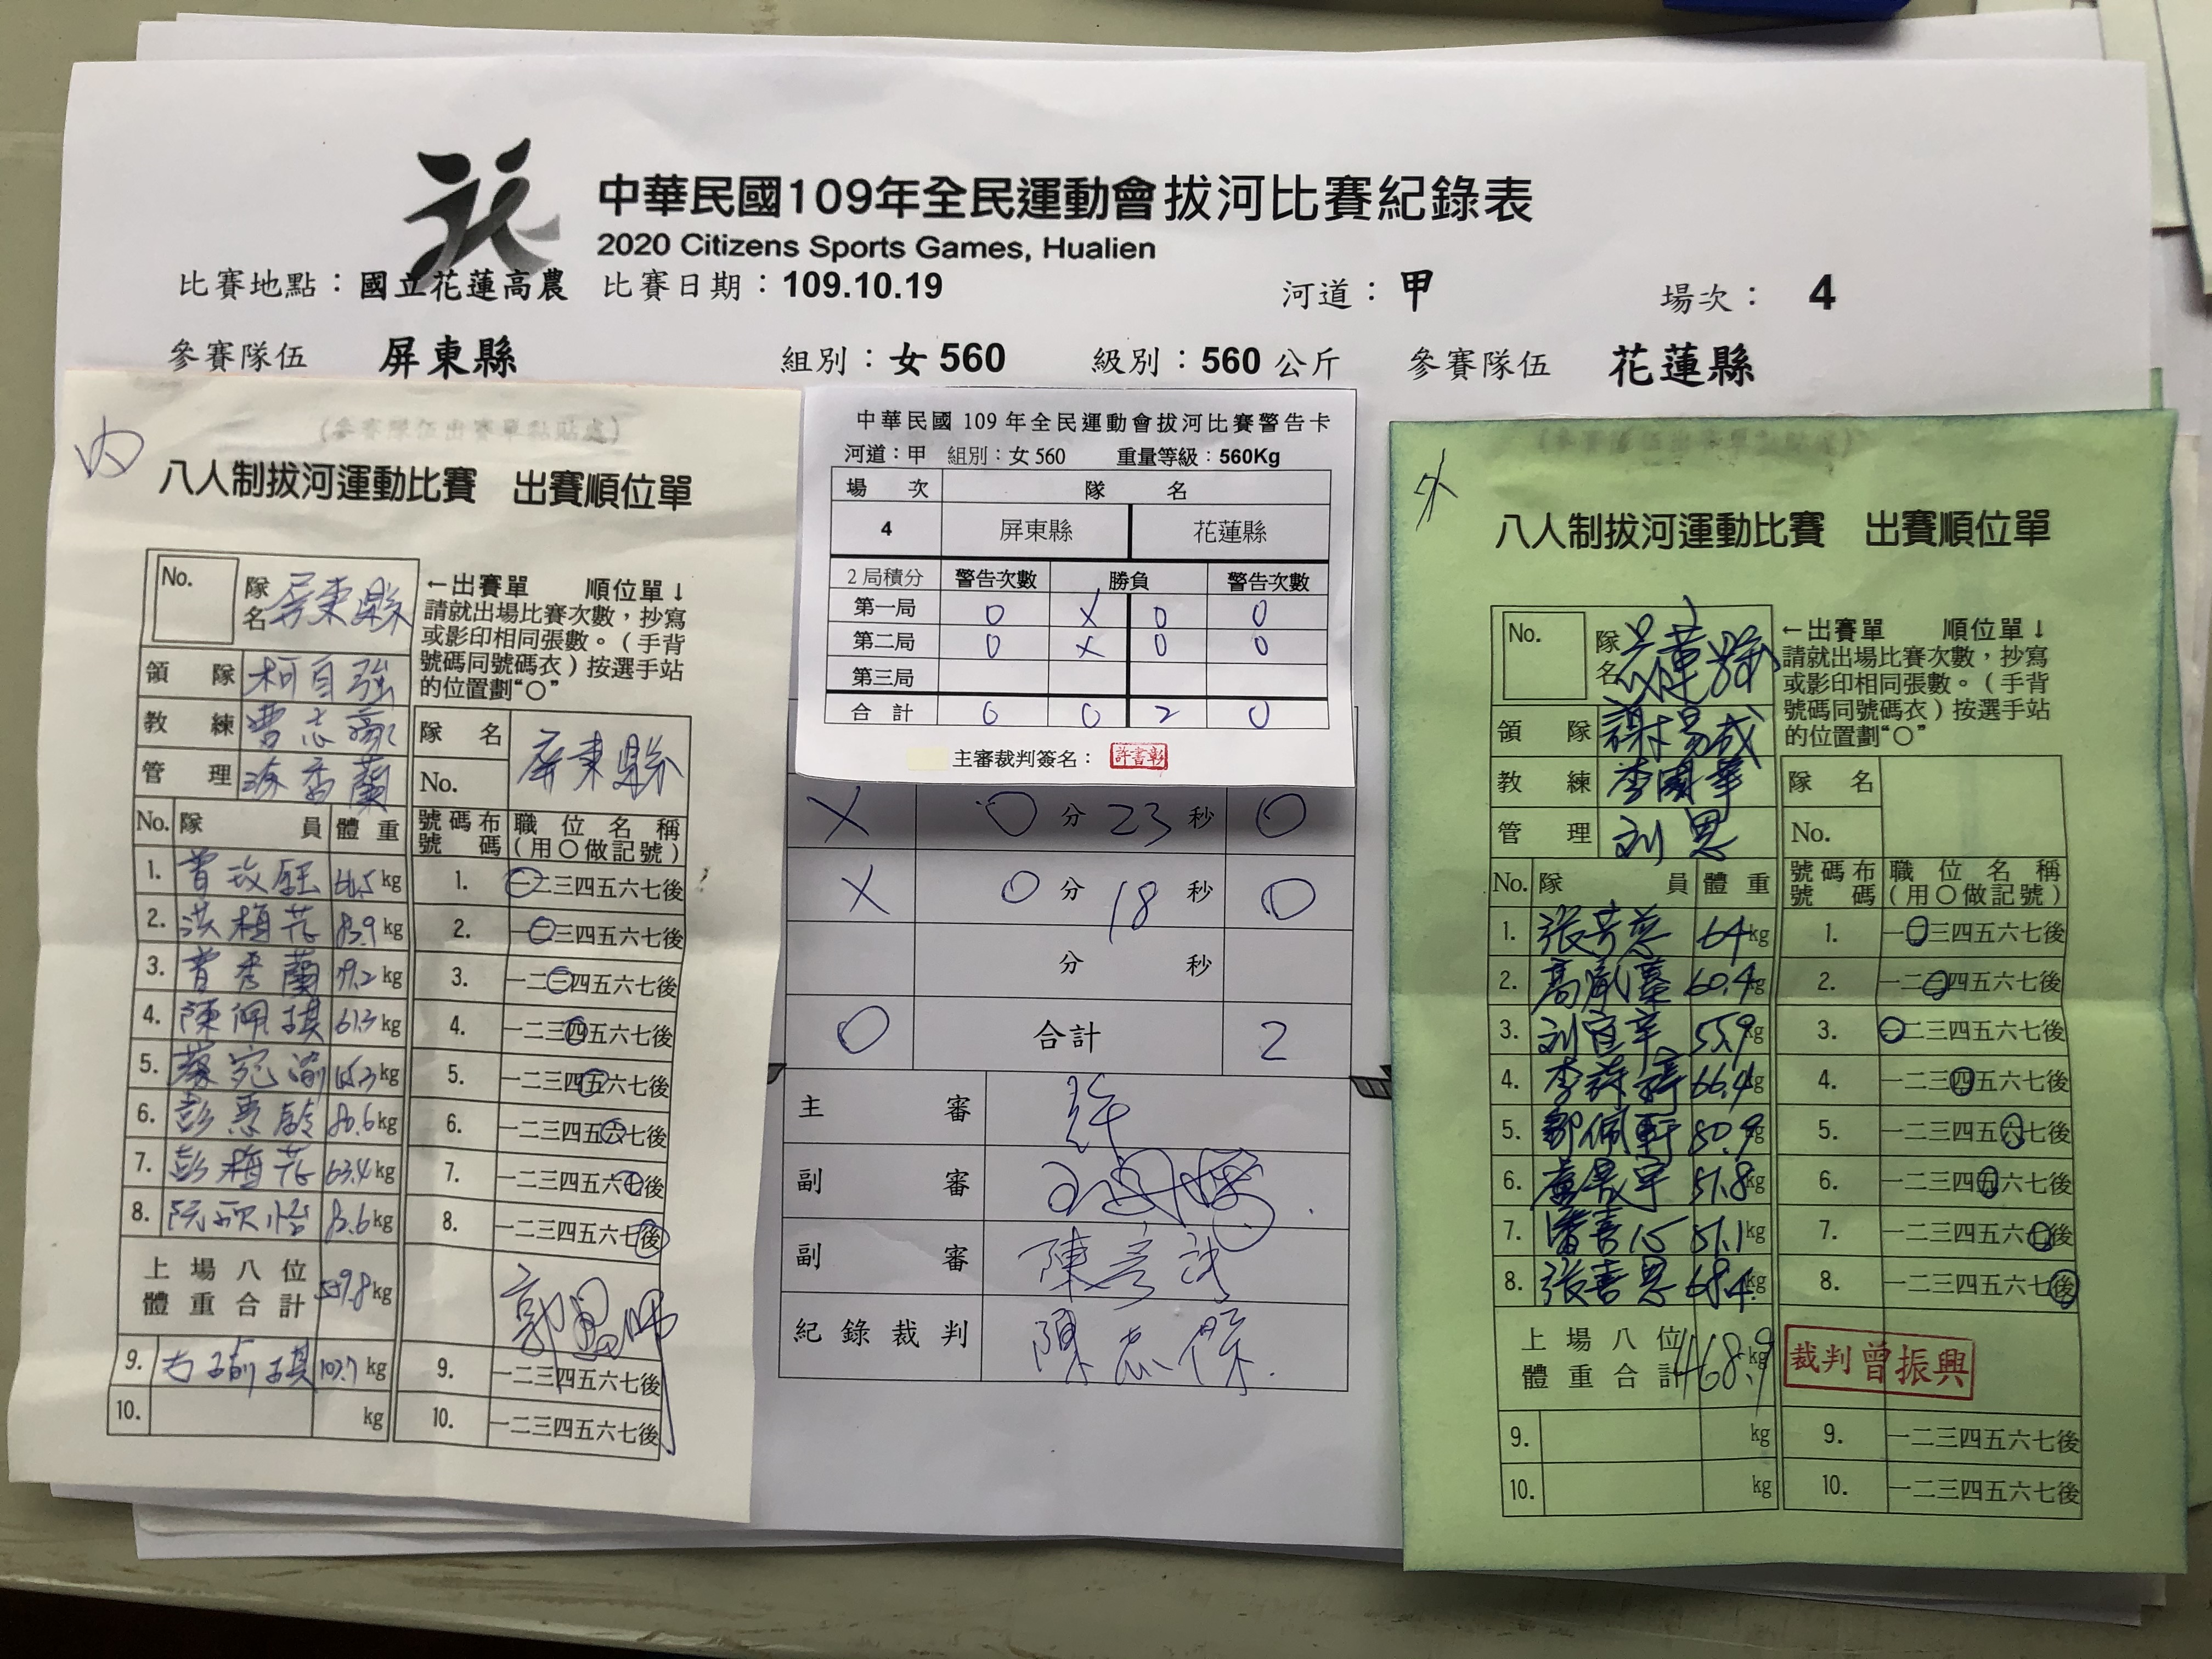 中華民國109年全民運動會拔河比賽紀錄表
2020 Citizens Sports Games, Hualien
比賽地點：國立花蓮高農 比賽日期：109.10.19 河道：甲 場次： 4
參賽隊伍 屏東縣 組別：女 560 級別：560 公斤 參賽隊伍 花蓮縣
內
八人制拔河運動比賽 出賽順位單
No. 隊名 屏東縣
←出賽單 順位單↓
請就出場比賽次數，抄寫
或影印相同張數。（手背
號碼同號碼衣）按選手站
的位置劃“○”
領 隊 柯自強
教 練 曹志
管 理 香蘭
隊 名 屏東縣
No.
No. 隊 員 體 重 號碼布號碼 職位名稱（用○做記號）
1. 曾 kg 1. 一二三四五六七後
2. 洪梅花 83.9 kg 2. 一二三四五六七後
3. 曾秀蘭 79.2 kg 3. 一二三四五六七後
4. 陳佩琪 61.3 kg 4. 一二三四五六七後
5. 蔡宛 kg 5. 一二三四五六七後
6. 彭惠齡 80.6 kg 6. 一二三四五六七後
7. 彭梅花 63.4 kg 7. 一二三四五六七後
8. 阮 kg 8. 一二三四五六七後
上場八位體重合計 559.8 kg
9. 琪 107.7 kg 9. 一二三四五六七後
10. kg 10. 一二三四五六七後
中華民國 109 年全民運動會拔河比賽警告卡
河道：甲 組別：女 560 重量等級：560Kg
場 次 隊 名
4 屏東縣 花蓮縣
2 局積分 警告次數 勝負 警告次數
第一局 0 X 0 0
第二局 0 X 0 0
第三局
合 計 0 0 2 0
主審裁判簽名： 許書彰
X 0 分 23 秒 0
X 0 分 18 秒 0
分 秒
0 合計 2
主 審 許
副 審
副 審 陳彥
紀錄裁判 陳志傑
外
八人制拔河運動比賽 出賽順位單
No. 隊名 花蓮縣
←出賽單 順位單↓
請就出場比賽次數，抄寫
或影印相同張數。（手背
號碼同號碼衣）按選手站
的位置劃“○”
領 隊 謝易成
教 練 李國華
管 理 刘 恩
隊 名
No.
No. 隊 員 體 重 號碼布號碼 職位名稱（用○做記號）
1. 張 64 kg 1. 一二三四五六七後
2. 高 60.4 kg 2. 一二三四五六七後
3. 刘宜 55.9 kg 3. 一二三四五六七後
4. 李 66.4 kg 4. 一二三四五六七後
5. 佩軒 50.9 kg 5. 一二三四五六七後
6. 宇 51.8 kg 6. 一二三四五六七後
7. 潘喜 51.1 kg 7. 一二三四五六七後
8. 張喜恩 68.4 kg 8. 一二三四五六七後
上場八位體重合計 468.9 kg
裁判曾振興
9. kg 9. 一二三四五六七後
10. kg 10. 一二三四五六七後